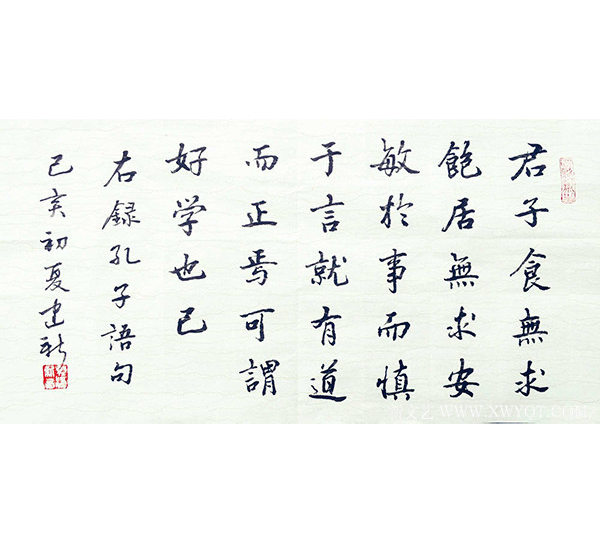 君子食無求
飽居無求安
敏於事而慎
于言就有道
而正焉可謂
好学也已
右録孔子語句
己亥初夏建新
WWW.XWYQT.COM